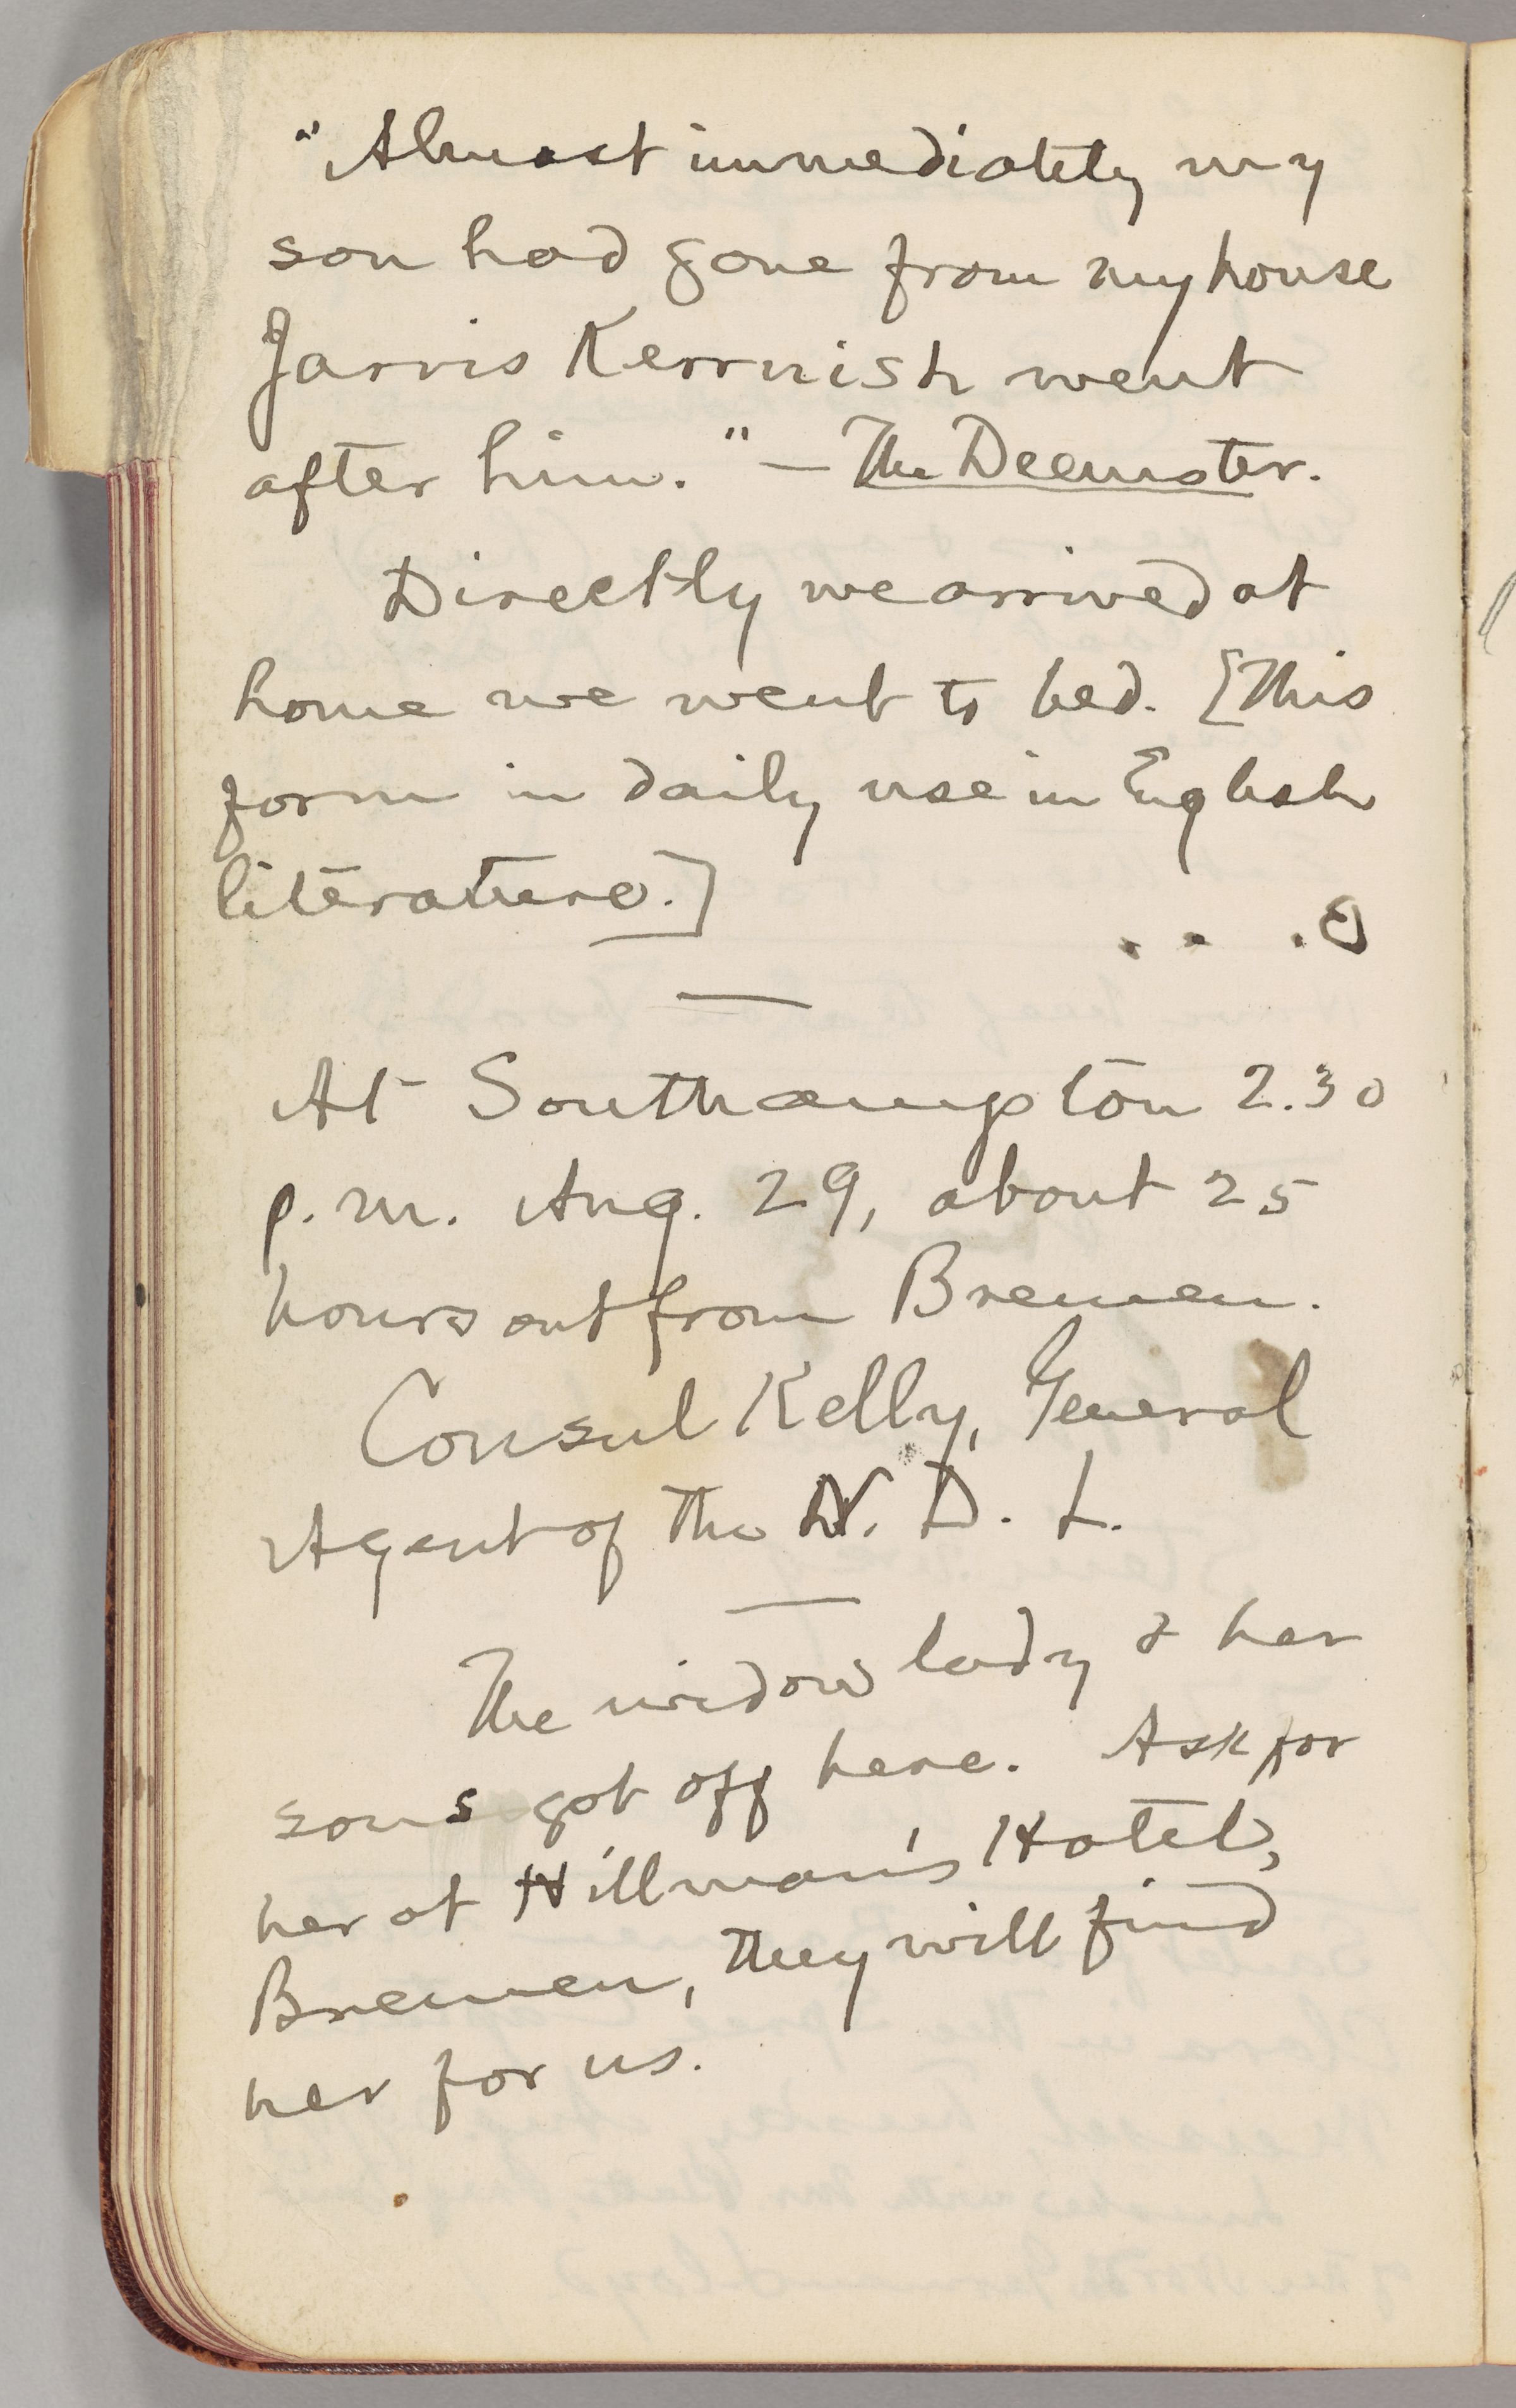 "Almost immediately my
son had gone from my house
Jarvis Kerruish went
after him." — The Deemster.
Directly we arrived at
home we went to bed. [This
form in daily use in English
literature.]
At Southampton 2.30
p.m. Aug. 29, about 25
hours out from Bremen.
Consul Kelly, General
Agent of the N. D. L.
The widow lady & her
sons got off here. Ask for
her at Hillman's Hotel,
Bremen, they will find
her for us.